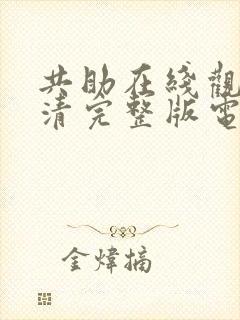 共助在綫觀
清完整版電
金煒摘